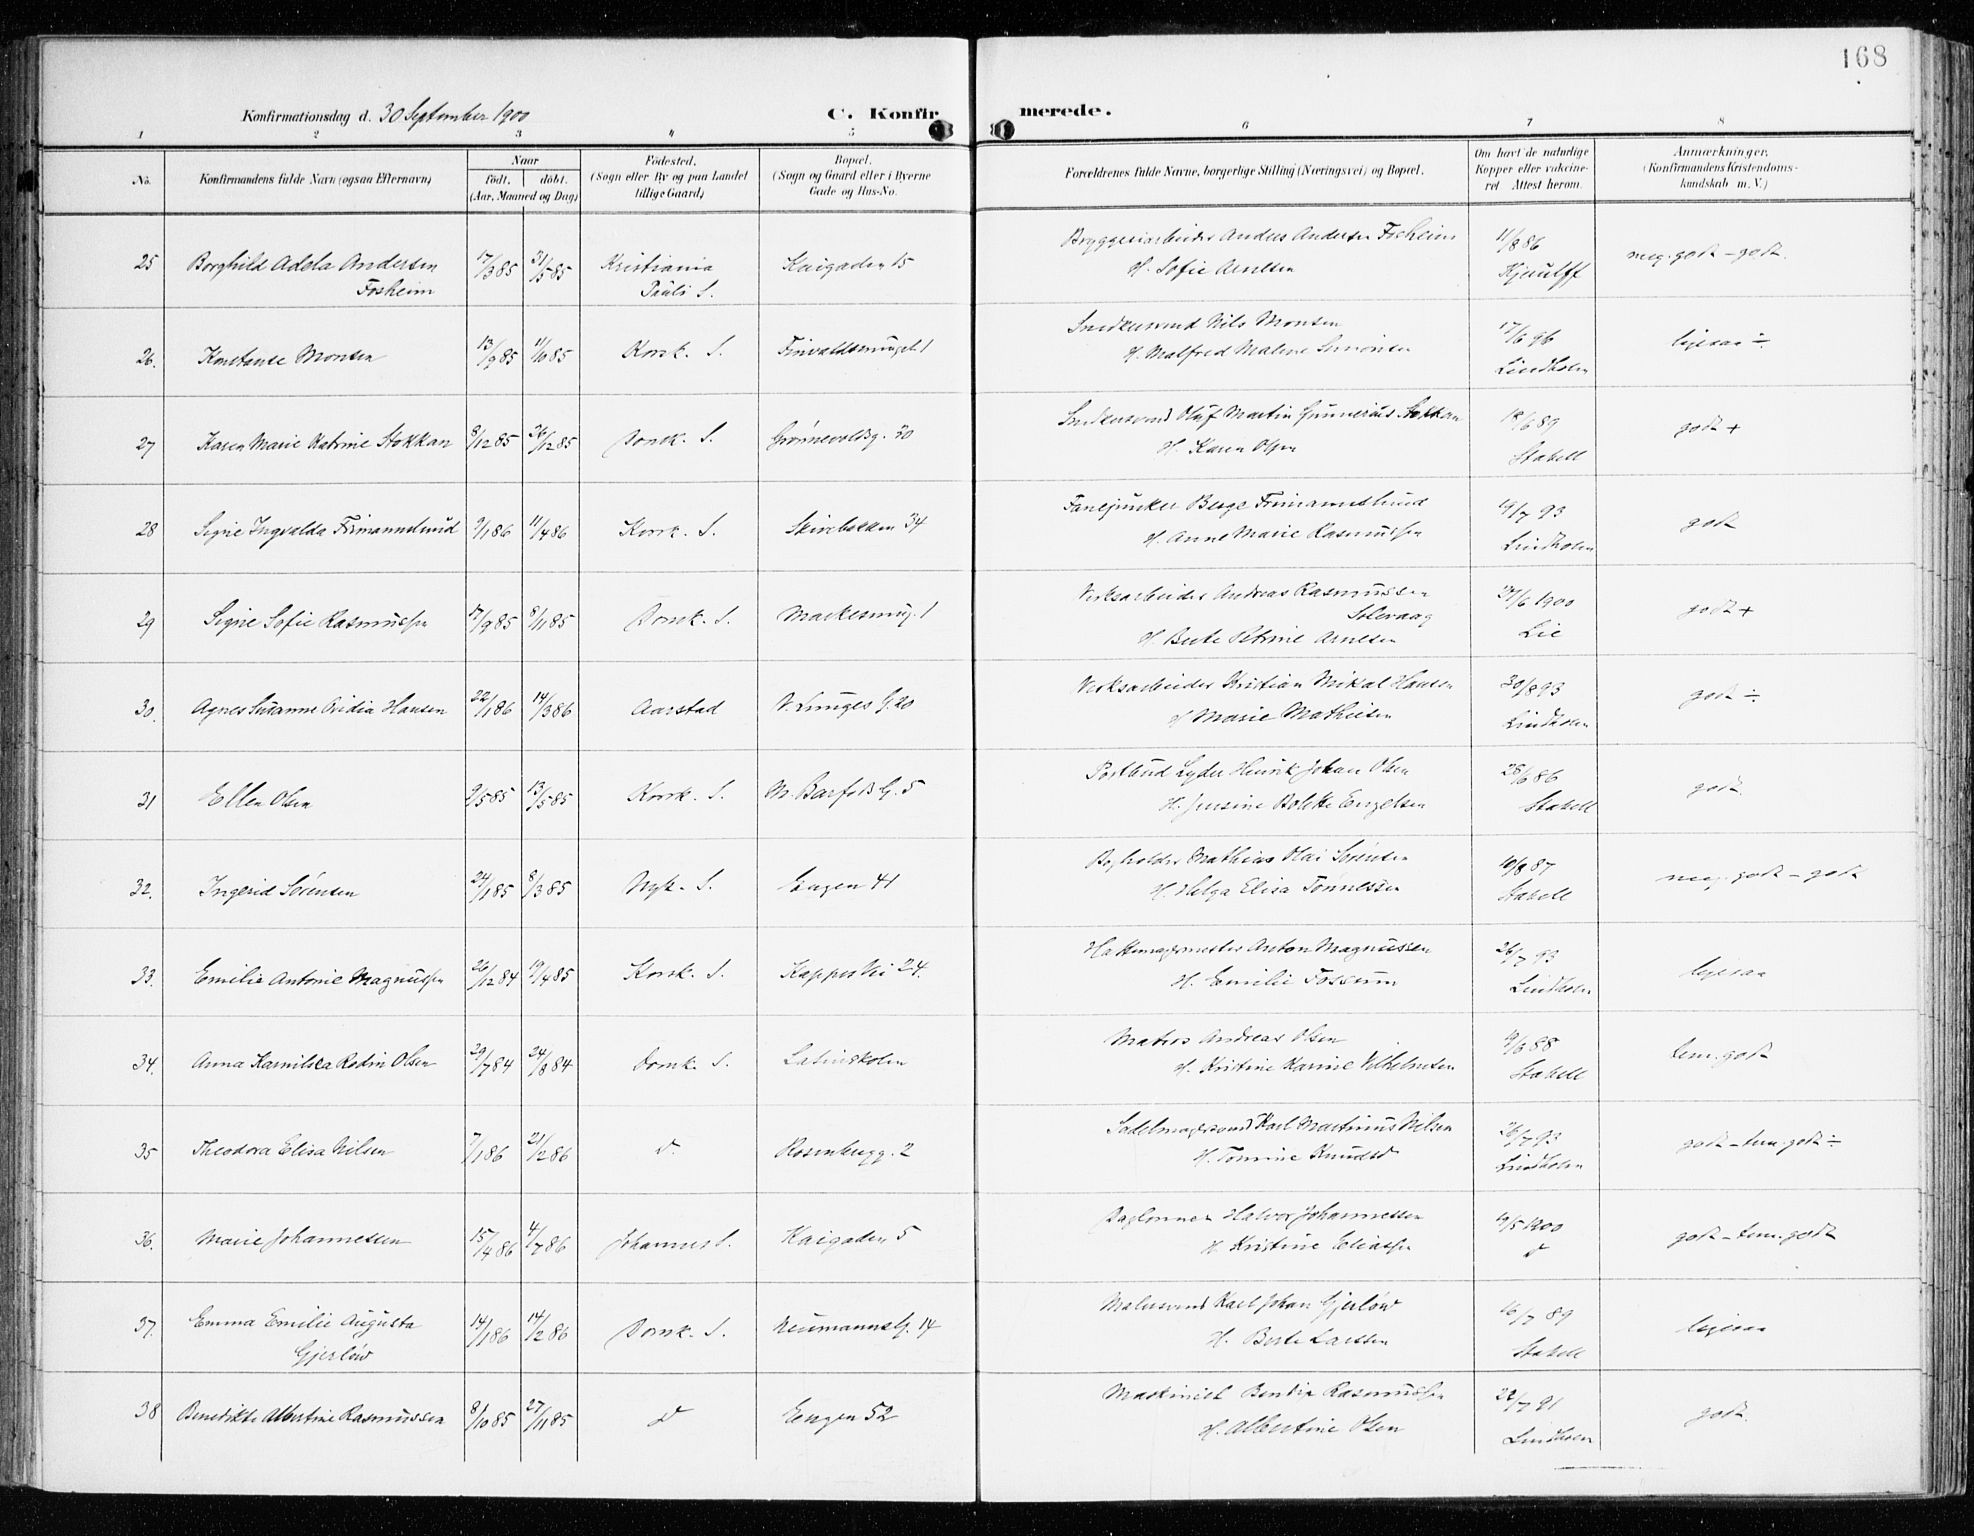 168
Konfirmationsdag d. 30 September 1900
C. Konfirmerede.
1 2 3 4 5 6 7 8
No.
Konfirmandens fulde Navn (ogsaa Efternavn)
Naar
født. døbt.
(Aar, Maaned og Dag)
Fødested.
(Sogn eller By og paa Landet
tillige Gaard)
Bopæl.
(Sogn og Gaard eller i Byerne
Gade og Hus-No.
Forældrenes fulde Navne, borgerlige Stilling (Næringsvei) og Bopæl.
Om havt de naturlige
Kopper eller vakcine-
ret Attest herom.
Anmærkninger.
(Konfirmandens Kristendoms-
kundskab m. V.)
25 Borghild Adela Andersen 17/3 85 31/5 85 Kristiania Kaigaden 15 Bryggeriarbeider Anders Andersen Fosheim 11/8 86 meg. godt - godt.
Fosheim Pauls S. H. Sofie Arnesen Kjeulff
26. Konstanse Monsen 13/9 85 11/10 85 Korsk. S. 1 Snedkersvend Nils Monsen 17/6 96 ligesaa ÷
H. Malfred Malene Simonsen Lindholm
27 Karen Marie Katrine Stokkan 8/12 85 26/12 85 Domk. S. Grønnevoldsg. 30 Snedkersvend Oluf Martin Gunnerius Stokkan 18/6 89 godt +
H. Karen Olsen Stabell
28 Signe Ingvalda Frimannslund 9/1 86 11/4 86 Korsk. S. Skivebakken 34 Fanejunker Berge Frimannslund 19/7 93 godt
H. Anne Marie Rasmussen Lindholm
29 Signe Sofie Rasmussen 17/9 85 8/11 85 Domk. S. Markesmug. 1 Verksarbeider Andreas Rasmussen 27/6 1900 godt +
Solevaag Lie
H. Berte Petrine Arnesen
30. Agnes Susanne Ovidia Hansen 22/1 86 14/3 86 Aarstad V. Lunges G. 20 Verksarbeider Kristian Mikal Hansen 30/8 93 godt ÷
H. Marie Mathisen Lindholm
31 Ellen Olsen 2/5 85 13/5 85 Korsk. S. M. Barfots G. 5 Postbud Lyder Henrik Johan Olsen 28/6 86 godt.
H. Jensine Bolette Engelsen Stabell
32. Ingerid Sørensen 24/1 85 8/3 85 Nyk. S. Engen 41 Bogholder Mathias Olai Sørensen 19/8 87 meg. godt - godt
H. Helga Elisa Tønnessen Stabell
33. Emilie Antonie Magnussen 26/12 84 19/4 85 Korsk. S. Kappes Vei 24. Hattemagermester Anton Magnussen 26/7 93 ligesaa
H. Emilie Fossum Lindholm
34. Anna Kamilla Olsen 29/7 84 24/8 84 Domk. S. Latinskolen Matros Andreas Olsen 9/3 88 tem. godt
H. Kristine Karine Vilhelmsen Stabell
35 Theodora Elisa Nilsen 7/1 86 21/2 86 d Rosenbergg. 2 Sadelmagersvend Karl Martinius Nilsen 26/7 93 godt - tem. godt ÷
H. Tomine Knudsd Lindholm
36. Marie Johannessen 15/4 86 4/7 86 Johannes S. Kaigaden 5 Daglønner Halvor Johannessen 19/5 1900 godt - tem. godt
H. Kristine Eliassen d
37. Emma Emilie Augusta 14/1 86 14/2 86 Domk. S. Neumannsg. 14 Malersvend Karl Johan Gjerløw 16/7 89 ligesaa
Gjerløw H. Berte Larsen Stabell
38 Benedikte Albertine Rasmussen 8/10 85 27/11 85 d Engen 52 Maskinist Rasmussen 22/7 91 godt.
H. Albertine Olsen Lindholm